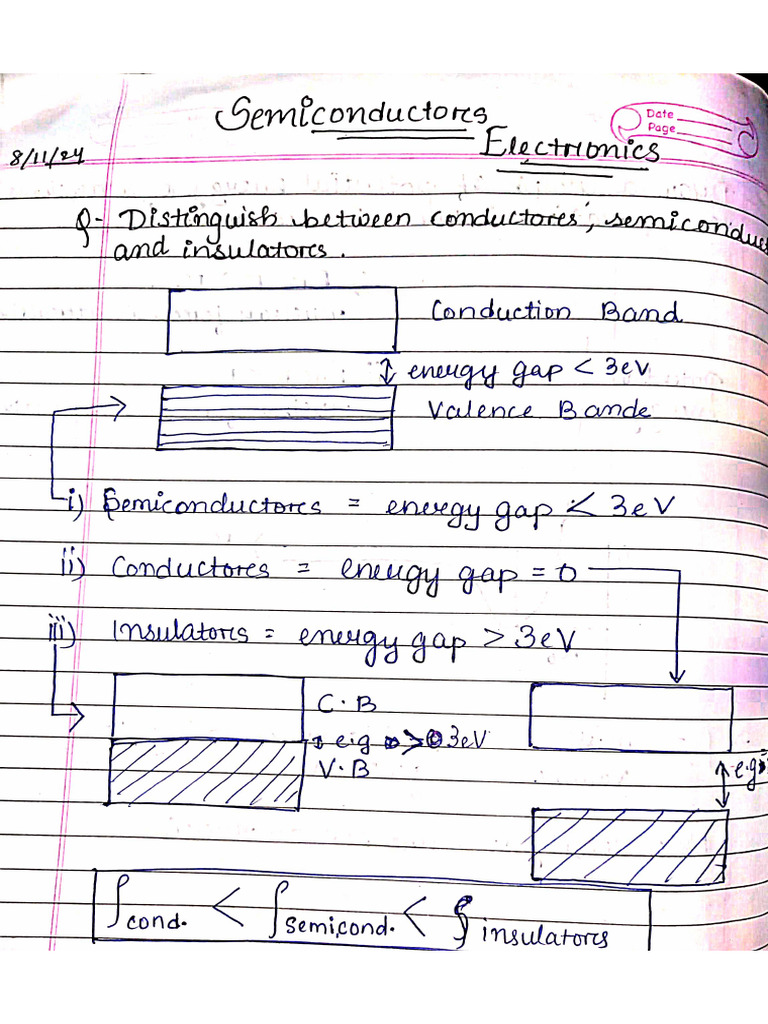 Semiconductores
Date
Page
Electrionics
8/11/24
Q- Distinguish between conductores, semiconduct
and insulatores.
Conduction Band
energy gap < 3ev
Valence Bande
i) Semiconductores = energy gap < 3eV
ii) Conductores = energy gap = 0
iii) Insulators = energy gap > 3eV
C.B
e.g > 3eV
V.B
e.g
ρcond. < ρsemicond. < ρinsulatores